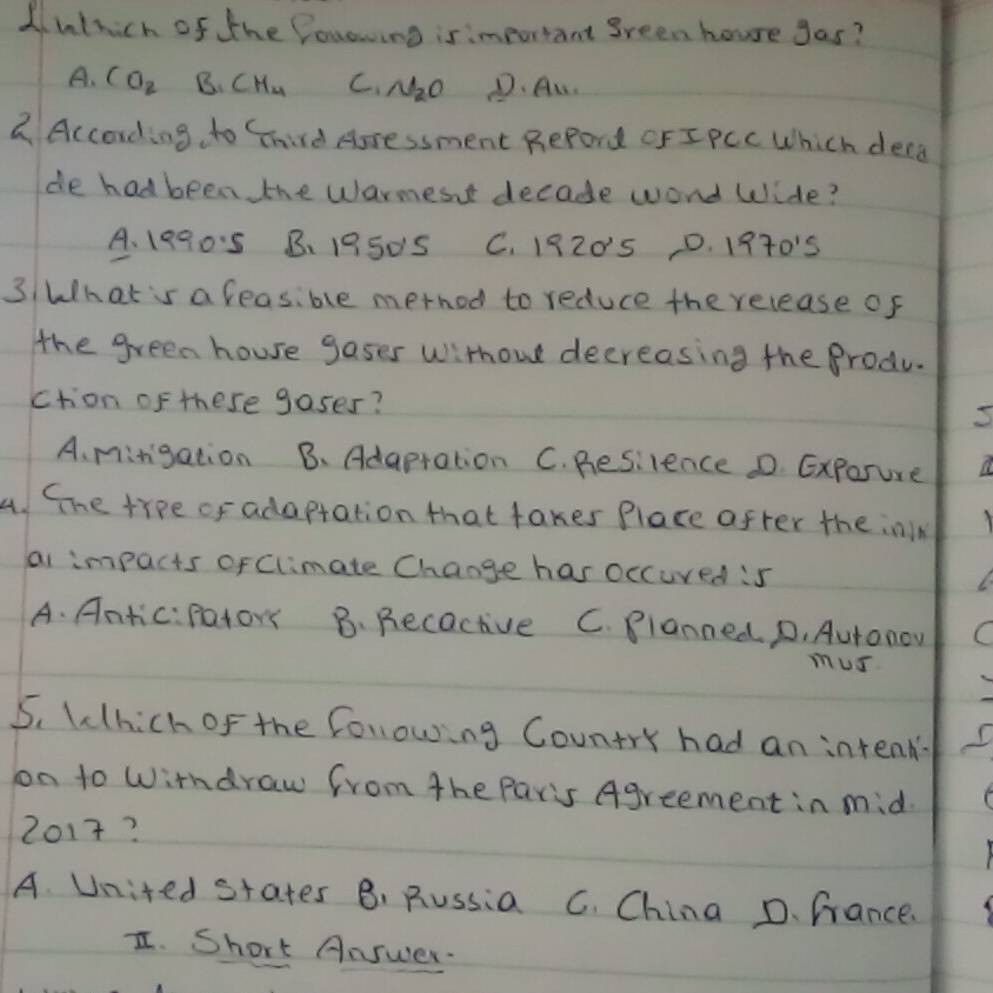 1. Which of the following is important Greenhouse gas?
A. CO2 B. CH4 C. N2O D. All.
2. According to Third Assessment Report of IPCC Which deca
de had been the Warmest decade world Wide?
A. 1990's B. 1950's C. 1920's D. 1970's
3. What is a feasible method to reduce the release of
the green house gases without decreasing the Produ-
ction of these gases?
A. Mitigation B. Adaptation C. Resilence D. Exposure
4. The type of adaptation that takes Place after the initi
al impacts of Climate Change has occured is
A. Anticipatory B. Recactive C. Planned D. Autonov
mus.
5. Which of the following Country had an intenti-
on to withdraw from the Paris Agreement in mid.
2017?
A. United States B. Russia C. China D. France.
II. Short Answer.